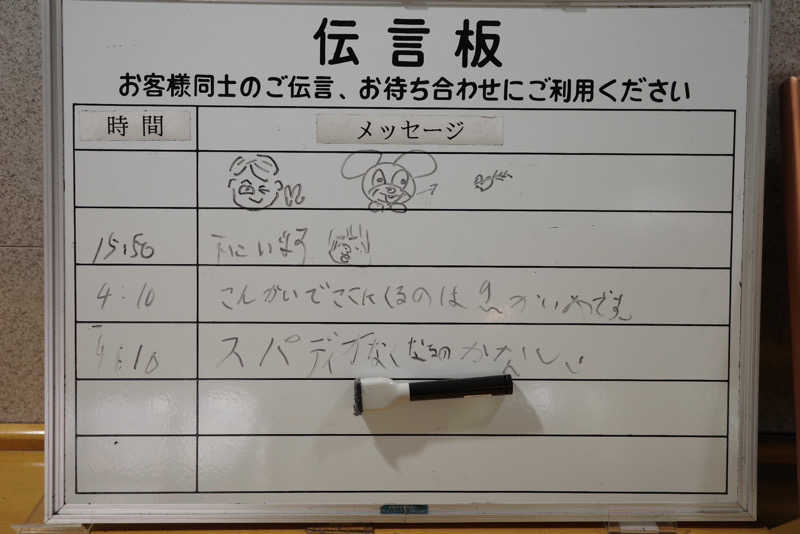 伝言板
お客様同士のご伝言、お待ち合わせにご利用ください
時間 メッセージ
15:50 下にいます
4:10 こんかいでここにくるのは かいめです
4:10 スパディオなくなるのかなしい